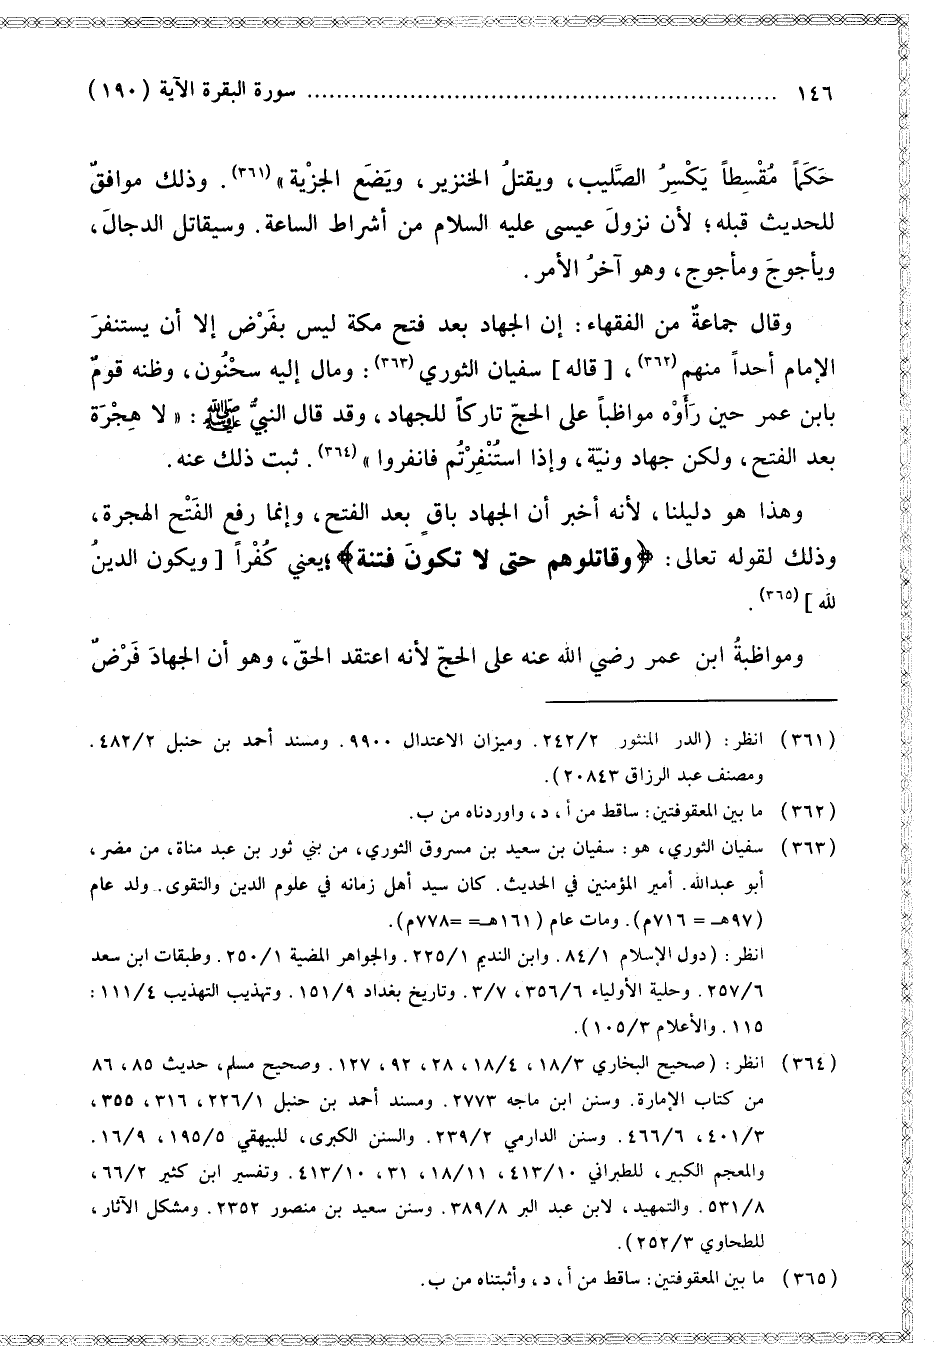 ١٤٦ ................................................................ سورة البقرة الآية (١٩٠)
حَكَماً مُقْسِطاً يَكْسِرُ الصَّليب، ويقتلُ الخنزير، ويَضَع الجزْية»(٣٦١). وذلك موافقٌ
للحديث قبله؛ لأن نزولَ عيسى عليه السلام من أشراط الساعة. وسيقاتل الدجالَ،
ويأجوجَ ومأجوج، وهو آخرُ الأمر.
وقال جماعةٌ من الفقهاء: إن الجهاد بعد فتح مكة ليس بفَرْض إلا أن يستنفرَ
الإمام أحداً منهم(٣٦٢)، [قاله] سفيان الثوري(٣٦٣): ومال إليه سحْنُون، وظنه قومٌ
بابن عمر حين رَأَوْه مواظباً على الحجّ تاركاً للجهاد، وقد قال النبيُّ ﷺ: «لا هِجْرَة
بعد الفتح، ولكن جهاد ونيّة، وإذا استُنْفِرْتُم فانفروا»(٣٦٤). ثبت ذلك عنه.
وهذا هو دليلنا، لأنه أخبر أن الجهاد باقٍ بعد الفتح، وإنما رفع الفَتْح الهجرة،
وذلك لقوله تعالى: ﴿وقاتلوهم حتى لا تكونَ فتنة﴾؛يعني كُفْراً [ويكون الدينُ
لله](٣٦٥).
ومواظبةُ ابن عمر رضي الله عنه على الحجّ لأنه اعتقد الحقّ، وهو أن الجهادَ فَرْضٌ
(٣٦١) انظر: (الدر المنثور ٢٤٢/٢. وميزان الاعتدال ٩٩٠٠. ومسند أحمد بن حنبل ٤٨٢/٢.
ومصنف عبد الرزاق ٢٠٨٤٣).
(٣٦٢) ما بين المعقوفتين: ساقط من أ، د، واوردناه من ب.
(٣٦٣) سفيان الثوري، هو: سفيان بن سعيد بن مسروق الثوري، من بني ثور بن عبد مناة، من مضر،
أبو عبدالله. أمير المؤمنين في الحديث. كان سيد أهل زمانه في علوم الدين والتقوى. ولد عام
(٩٧هـ = ٧١٦م). ومات عام (١٦١هـ= =٧٧٨م).
انظر: (دول الإسلام ٨٤/١. وابن النديم ٢٢٥/١. والجواهر المضية ٢٥٠/١. وطبقات ابن سعد
٢٥٧/٦. وحلية الأولياء ٣٥٦/٦، ٣/٧. وتاريخ بغداد ١٥١/٩. وتهذيب التهذيب ١١١/٤:
١١٥. والأعلام ١٠٥/٣).
(٣٦٤) انظر: (صحيح البخاري ١٨/٣، ١٨/٤، ٢٨، ٩٢، ١٢٧. وصحيح مسلم، حديث ٨٥، ٨٦
من كتاب الإمارة. وسنن ابن ماجه ٢٧٧٣. ومسند أحمد بن حنبل ٢٢٦/١، ٣١٦، ٣٥٥،
٤٠١/٣، ٤٦٦/٦. وسنن الدارمي ٢٣٩/٢. والسنن الكبرى، للبيهقي ١٩٥/٥، ١٦/٩.
والمعجم الكبير، للطبراني ٤١٣/١٠، ١٨/١١، ٣١، ٤١٣/١٠. وتفسير ابن كثير ٦٦/٢،
٥٣١/٨. والتمهيد، لابن عبد البر ٣٨٩/٨. وسنن سعيد بن منصور ٢٣٥٢. ومشكل الآثار،
للطحاوي ٢٥٢/٣).
(٣٦٥) ما بين المعقوفتين: ساقط من أ، د، وأثبتناه من ب.